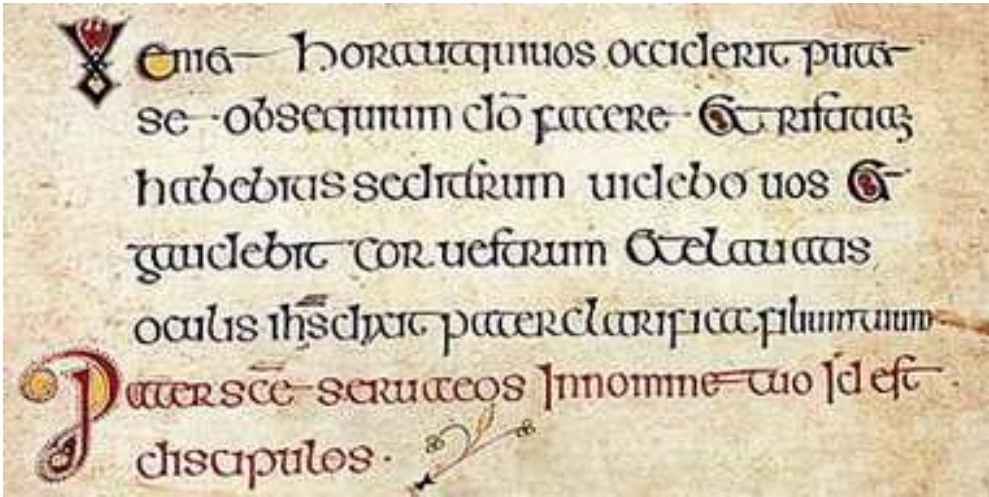 hora ut qui uos occiderit
se obsequium dō facere Et
habebitis sed iterum uidebo uos Et
gaudebit cor uestrum Et
oculis ih̄s dixit pater clarifica filium tuum
Pater sc̄e serua eos In nomine tuo Id est
discipulos.